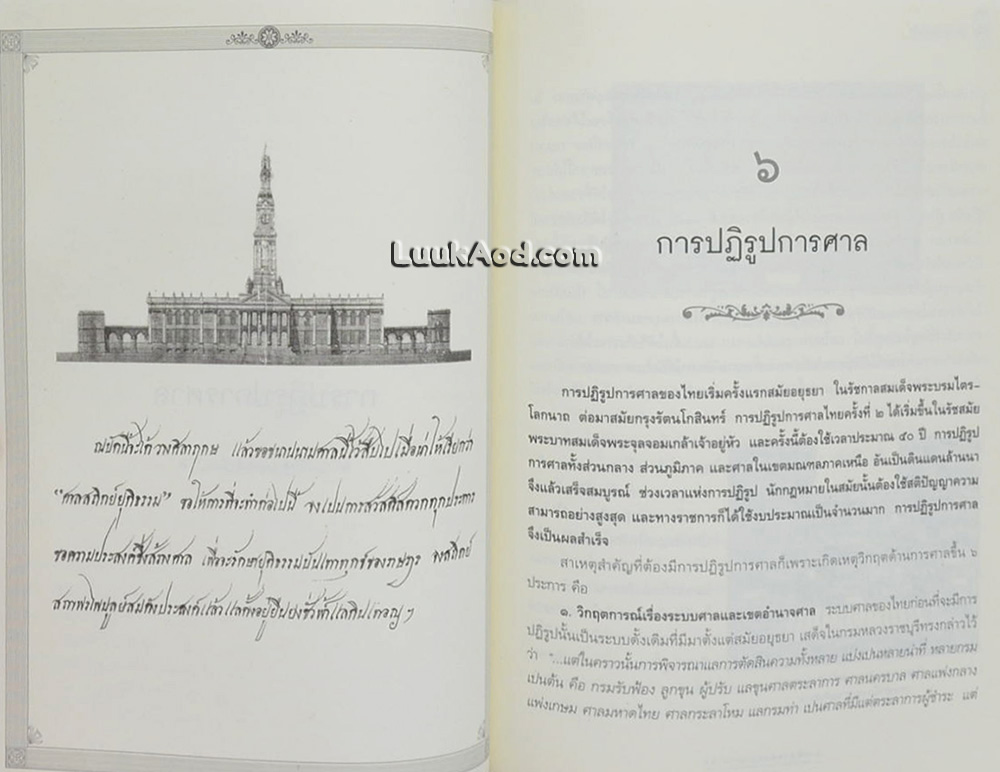 ณบัดนี้จะได้วางศิลาฤกษ แล้วขอขนานนามศาลนี้ไว้สืบไปเมื่อน่าให้เรียกว่า
"ศาลสถิตย์ยุติธรรม" ขอให้การที่จะทำต่อไปนี้ จงเปนการสวัสดิสดวกทุกประการ
ขอความประสงค์ซึ่งสร้างศาล เพื่อจะรักษายุติธรรมบันเทาทุกข์ของราษฎร จงสถิตย์
สถาพรไพบูลย์สมดังประสงค์แล้วแลตั้งอยู่ยืนยงชั่วฟ้าแลดินเทอญฯ
LuukAod.com
๖
การปฏิรูปการศาล
การปฏิรูปการศาลของไทยเริ่มครั้งแรกสมัยอยุธยา ในรัชกาลสมเด็จพระบรมไตร-
โลกนาถ ต่อมาสมัยกรุงรัตนโกสินทร์ การปฏิรูปการศาลไทยครั้งที่ ๒ ได้เริ่มขึ้นในรัชสมัย
พระบาทสมเด็จพระจุลจอมเกล้าเจ้าอยู่หัว และครั้งนี้ต้องใช้เวลาประมาณ ๔๐ ปี การปฏิรูป
การศาลทั้งส่วนกลาง ส่วนภูมิภาค และศาลในเขตมณฑลภาคเหนือ อันเป็นดินแดนล้านนา
จึงแล้วเสร็จสมบูรณ์ ช่วงเวลาแห่งการปฏิรูป นักกฎหมายในสมัยนั้นต้องใช้สติปัญญาความ
สามารถอย่างสูงสุด และทางราชการก็ได้ใช้งบประมาณเป็นจำนวนมาก การปฏิรูปการศาล
จึงเป็นผลสำเร็จ
สาเหตุสำคัญที่ต้องมีการปฏิรูปการศาลก็เพราะเกิดเหตุวิกฤตด้านการศาลขึ้น ๖
ประการ คือ
๑. วิกฤตการณ์เรื่องระบบศาลและเขตอำนาจศาล ระบบศาลของไทยก่อนที่จะมีการ
ปฏิรูปนั้นเป็นระบบดั้งเดิมที่มีมาตั้งแต่สมัยอยุธยา เสด็จในกรมหลวงราชบุรีทรงกล่าวไว้
ว่า "...แต่ในคราวนั้นการพิจารณาแลการตัดสินความทั้งหลาย แบ่งเปนหลายน่าที่ หลายกรม
เปนต้น คือ กรมรับฟ้อง ลูกขุน ผู้ปรับ แลขุนศาลตระลาการ ศาลนครบาล ศาลแพ่งกลาง
แพ่งเกษม ศาลมหาดไทย ศาลกระลาโหม แลกรมท่า เปนศาลที่มีแต่ตระลาการผู้ชำระ แต่